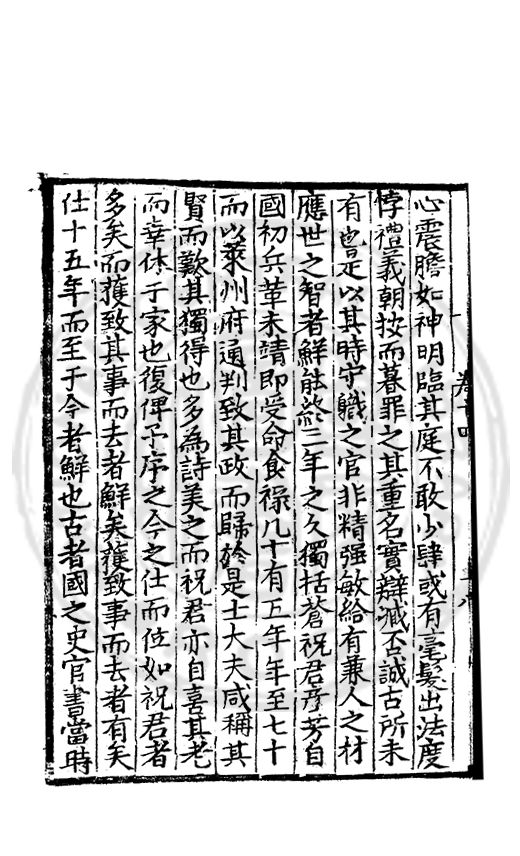 心震膽如神明臨其庭不敢少肆或有毫髮出法度
悖禮義朝按而暮罪之其重名實辯滅否誠古所未
有也是以其時守職之官非精强敏給有兼人之材
應世之智者鮮能終三年之久獨括蒼祝君彦芳自
國初兵革未靖即受命食禄凡十有五年年至七十
而以萊州府通判致其政而歸於是士大夫咸稱其
賢而歎其獨得也多為詩美之而祝君亦自喜其老
而幸休于家也復俾予序之今之仕而位如祝君者
多矣而獲致其事而去者鮮矣獲致事而去者有矣
仕十五年而至于今者鮮也古者國之史官書當時
卷十四